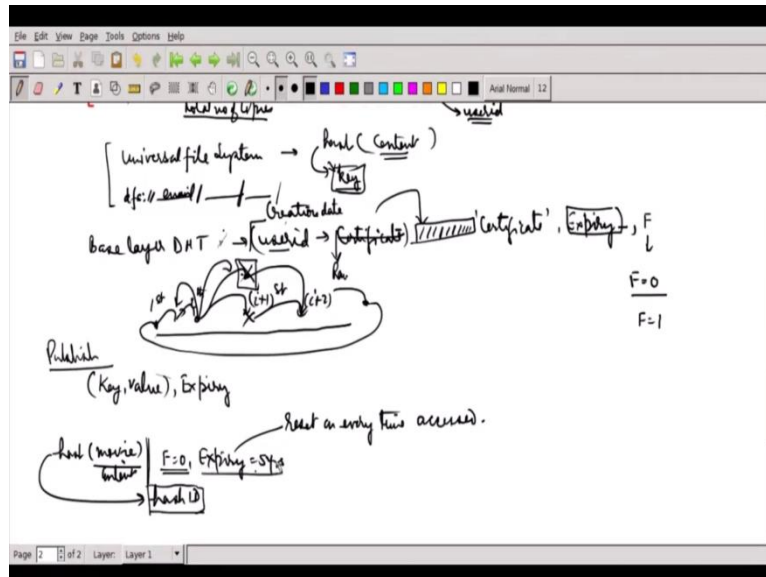 File Edit View Page Tools Options Help
Arial Normal 12
total no of copies userid
Universal file system → hash (content)
key
dfs:// email/
Creation date
Base layer DHT → userid → Certificate 'Certificate', Expiry, F
F=0
F=1
1st (i+1)st (i+2)
Publish
(Key, value), Expiry
Reset on every time accessed.
hash (movie) F=0, Expiry = 5yrs
content
hash ID
Page 2 of 2 Layer: Layer 1